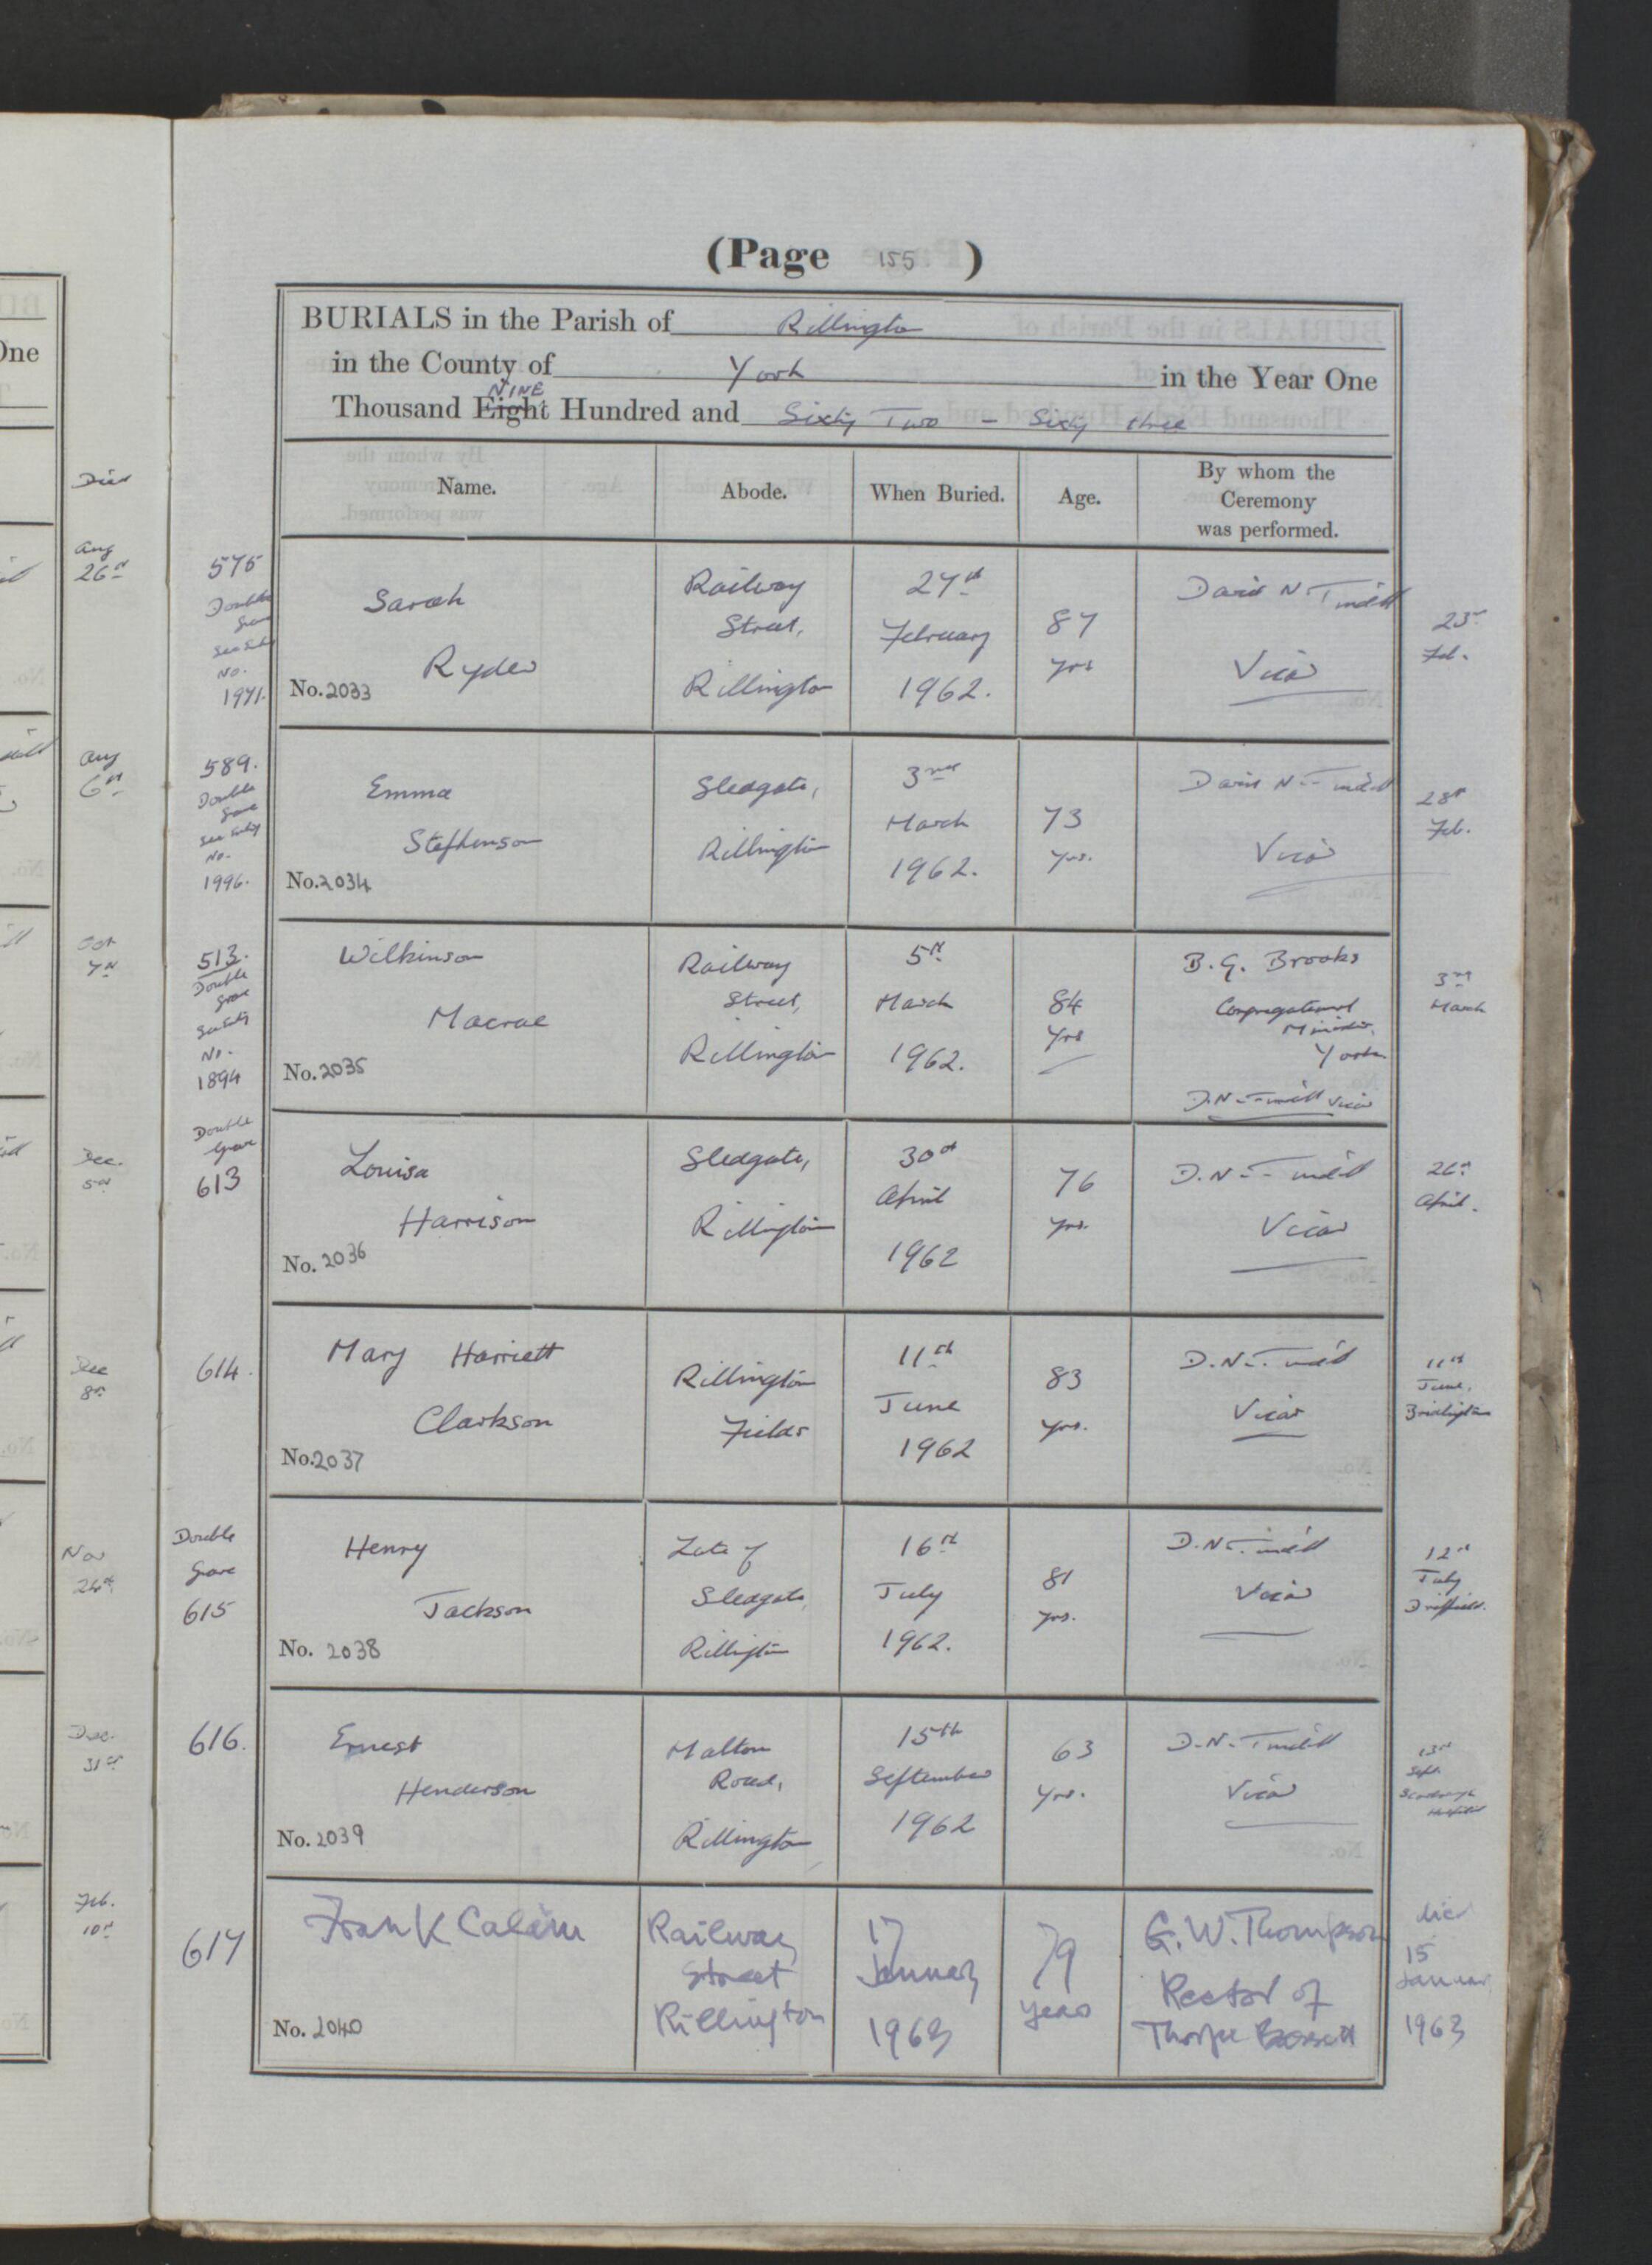 (Page 155)
BURIALS in the Parish of Rillington
in the County of York in the Year One
NINE
Thousand Eight Hundred and Sixty Two - Sixty three
Name. Abode. When Buried. Age. By whom the
Ceremony
was performed.
575
Double
Grave
See Entry
No.
1971.
Sarah
Ryder
No. 2033
Railway
Street,
Rillington
27th
February
1962.
87
yrs
David N. Tindell
Vicar
23rd
Feb.
589.
Double
Grave
See Entry
No.
1996.
Emma
Stephenson
No. 2034
Sledgate,
Rillington
3rd
March
1962.
73
yrs.
David N. Tindell
Vicar
28th
Feb.
513.
Double
Grave
See Entry
No.
1894
Wilkinson
Macrae
No. 2035
Railway
Street,
Rillington
5th
March
1962.
84
yrs
B.G. Brooks
Congregational
Minister,
D.N. Tindell Vicar
3rd
March
Double
Grave
613
Louisa
Harrison
No. 2036
Sledgate,
Rillington
30th
April
1962
76
yrs.
D.N. Tindell
Vicar
26th
April.
614.
Mary Harriett
Clarkson
No. 2037
Rillington
Fields
11th
June
1962
83
yrs.
D.N. Tindell
Vicar
11th
June,
Bridlington
Double
Grave
615
Henry
Jackson
No. 2038
Late of
Sledgate,
Rillington
16th
July
1962.
81
yrs.
D.N. Tindell
Vicar
12th
July
Driffield.
616.
Ernest
Henderson
No. 2039
Malton
Road,
Rillington
15th
September
1962
63
yrs.
D.N. Tindell
Vicar
13th
Sept.
Scarborough
Hospital
617
Frank Calam
No. 2040
Railway
Street
Rillington
17
January
1963
79
years
G.W. Thompson
Rector of
Thorpe Bassett
died
15
January
1963
One
Died
Aug
26th
Aug
6th
Oct
7th
Dec.
5th
Dec
8th
Nov
26th
Dec.
31st
Feb.
10th